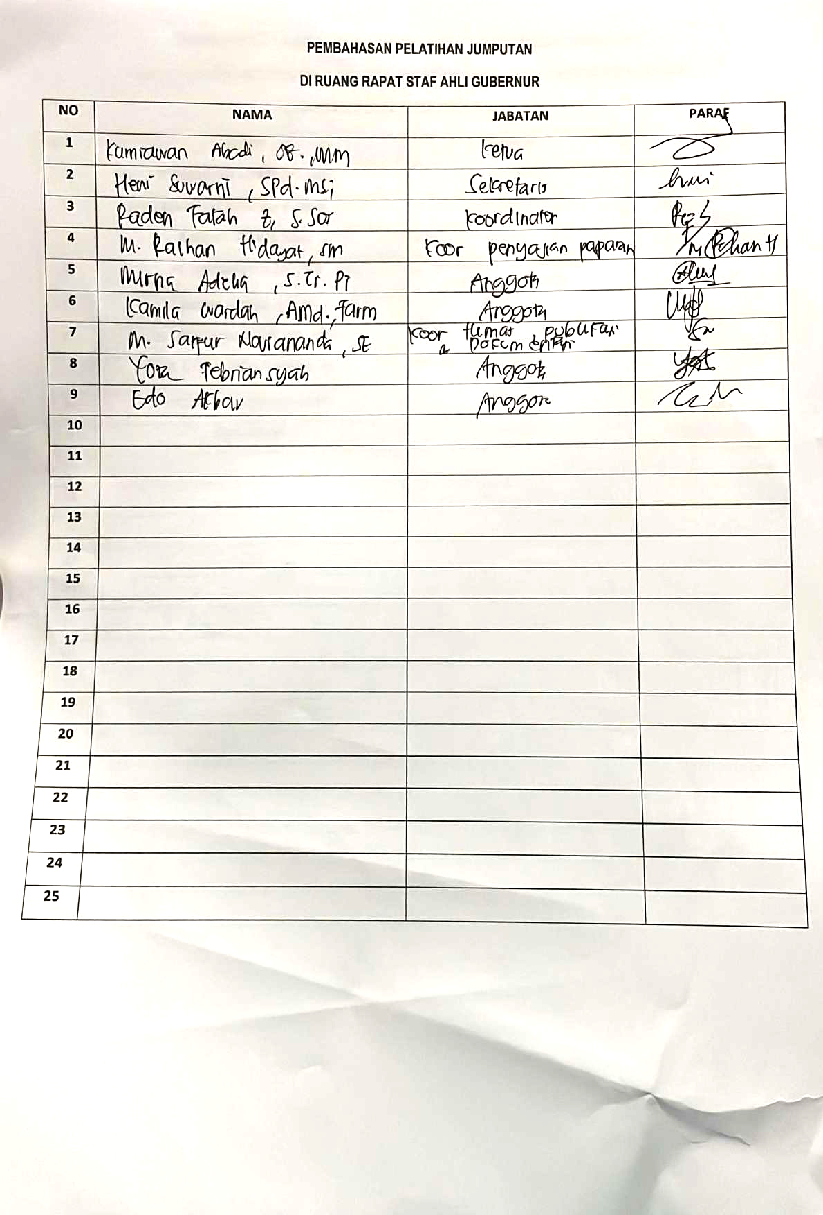 PEMBAHASAN PELATIHAN JUMPUTAN
DI RUANG RAPAT STAF AHLI GUBERNUR
NO NAMA JABATAN PARAF
1 Kumrawan Abadi, MM Ketua
2 Heni Suwarni, SPd. MSi Sekretaris
3 Raden Fatah Z, S. Sos Koordinator
4 M. Raihan Hidayat, SM Koor penyajian paparan
5 Mirna Adelia, S.Tr. Pi Anggota
6 Kamila Wardah, Amd. Farm Anggota
7 M. Navananda, SE Koor Humas, publikasi
& Dokumentasi
8 Yoza Febriansyah Anggota
9 Edo Akbar Anggota
10
11
12
13
14
15
16
17
18
19
20
21
22
23
24
25